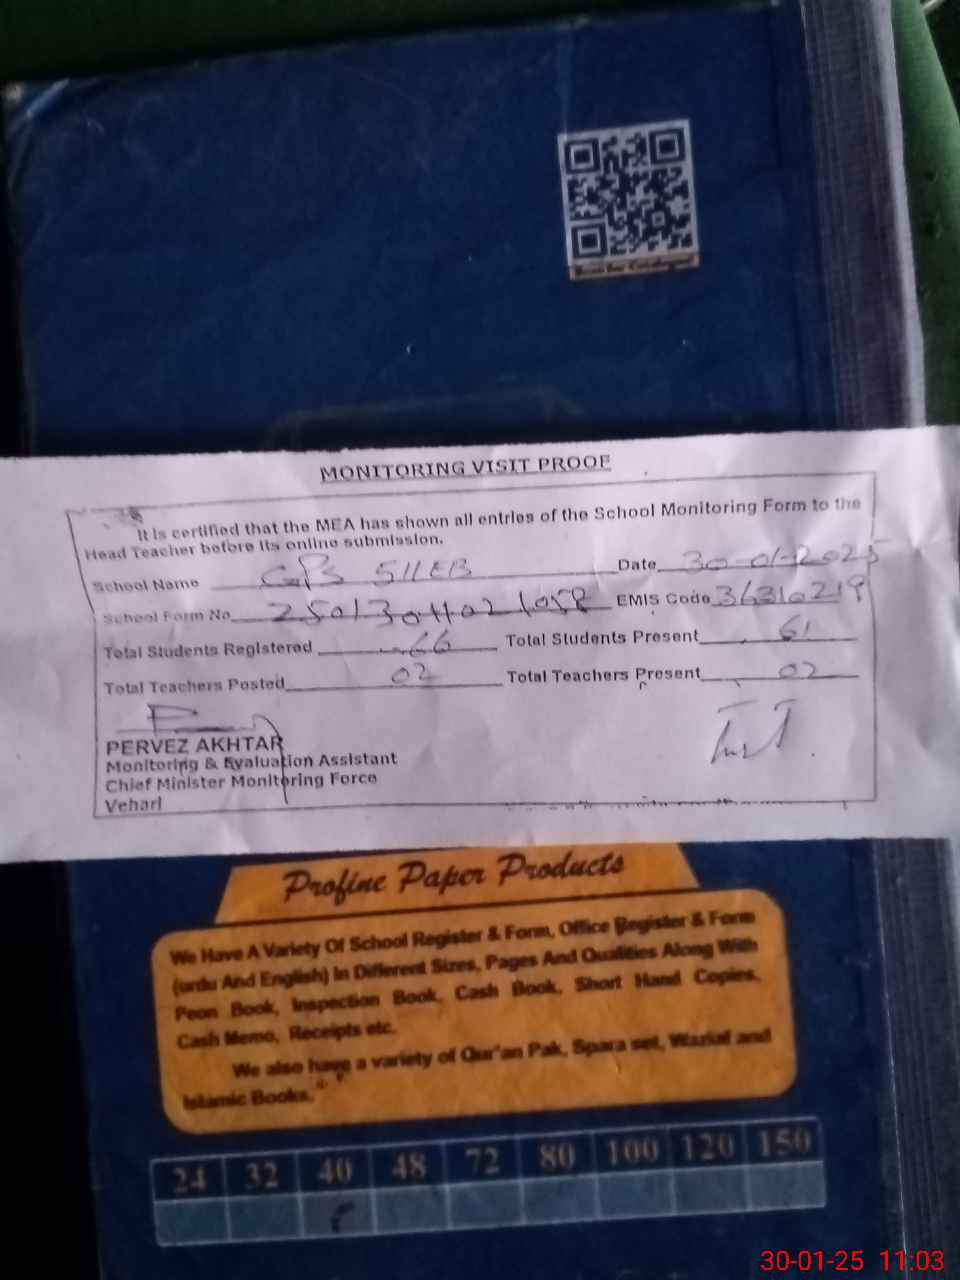 Scan for Catalogue
MONITORING VISIT PROOF
It is certified that the MEA has shown all entries of the School Monitoring Form to the
Head Teacher before its online submission.
School Name GPS 511EB Date 30-01-2025
School Form No EMIS Code 36310219
Total Students Registered 66 Total Students Present 61
Total Teachers Posted 02 Total Teachers Present 02
PERVEZ AKHTAR
Monitoring & Evaluation Assistant
Chief Minister Monitoring Force
Vehari
Profine Paper Products
We Have A Variety Of School Register & Form, Office Register & Form
(urdu And English) In Different Sizes, Pages And Qualities Along With
Peon Book, Inspection Book, Cash Book, Short Hand Copies,
Cash Memo, Receipts etc.
We also have a variety of Qur'an Pak, Spara set, Waziaf and
Islamic Books.
24 32 40 48 72 80 100 120 150
30-01-25 11:03